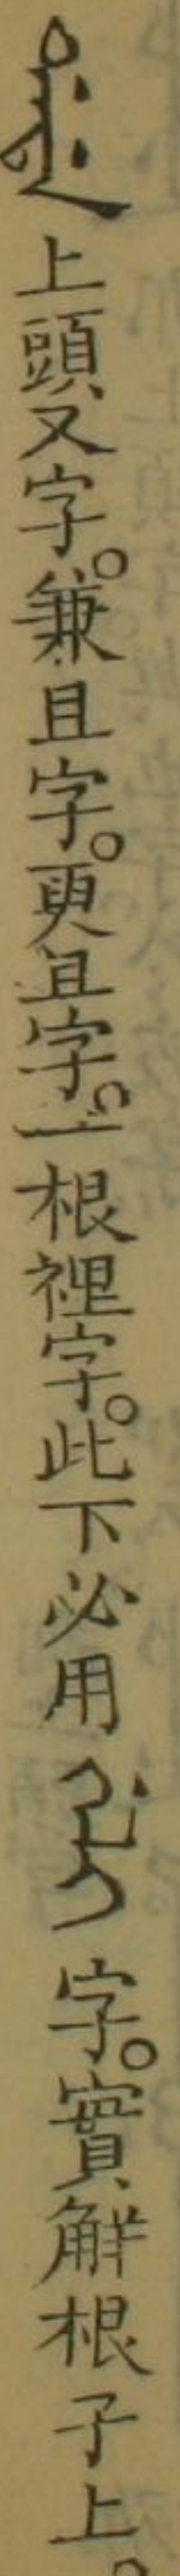 ᡩᠠᡩᡝ 上頭又字。兼且字。更且字。一根裡字。此下必用 ᡤᡝᠯᡳ 字。實解根子上。